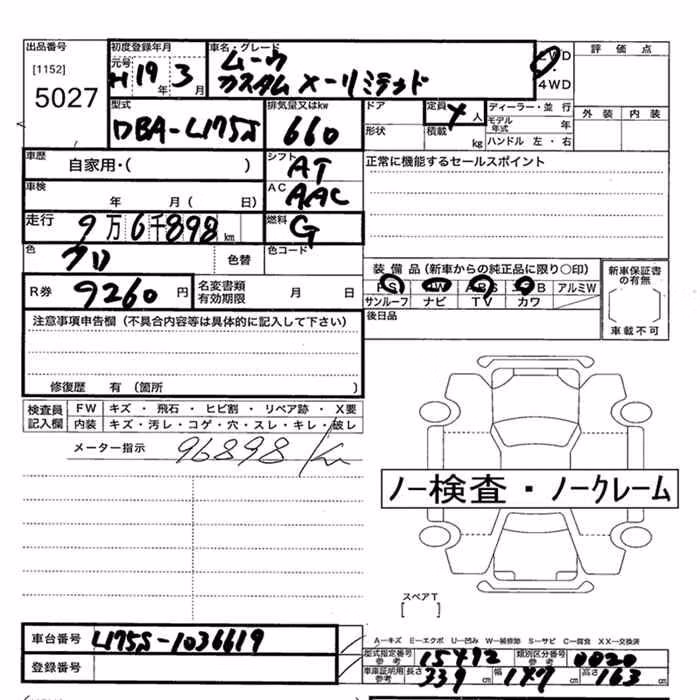 出品番号
[1152]
5027
初度登録年月
元号
H19年3月
車名・グレード
ムーヴ
カスタム X-リミテッド
2WD
・
4WD
評価点
外装 内装
型式
DBA-L175S
排気量又はkw
660
ドア
形状
定員
4人
積載
kg
ディーラー・並行
モデル年式 年
ハンドル 左・右
車歴
自家用・( )
シフト
AT
車検
年 月( 日)
AC
AAC
正常に機能するセールスポイント
走行
9万6千898km
燃料
G
色
クロ
色替
色コード
R券
9260円
名変書類
有効期限
月 日
装備品(新車からの純正品に限り○印)
PS PW ABS エアB アルミW
サンルーフ ナビ TV カワ
後日品
新車保証書
の有無
車載不可
注意事項申告欄(不具合内容等は具体的に記入して下さい)
修復歴 有(箇所 )
検査員
記入欄
FW キズ・飛石・ヒビ割・リペア跡・X要
内装 キズ・汚レ・コゲ・穴・スレ・キレ・破レ
メーター指示 96898 Km
ノー検査・ノークレーム
スペアT
[ ]
A-キズ E-エクボ U-凹み W-補修跡 S-サビ C-腐食 XX-交換済
車台番号
L175S-1036619
登録番号
型式指定番号
参考
15492
類別区分番号
参考
0020
車庫証明用
参考
長さ 339cm 幅 147cm 高さ 163cm